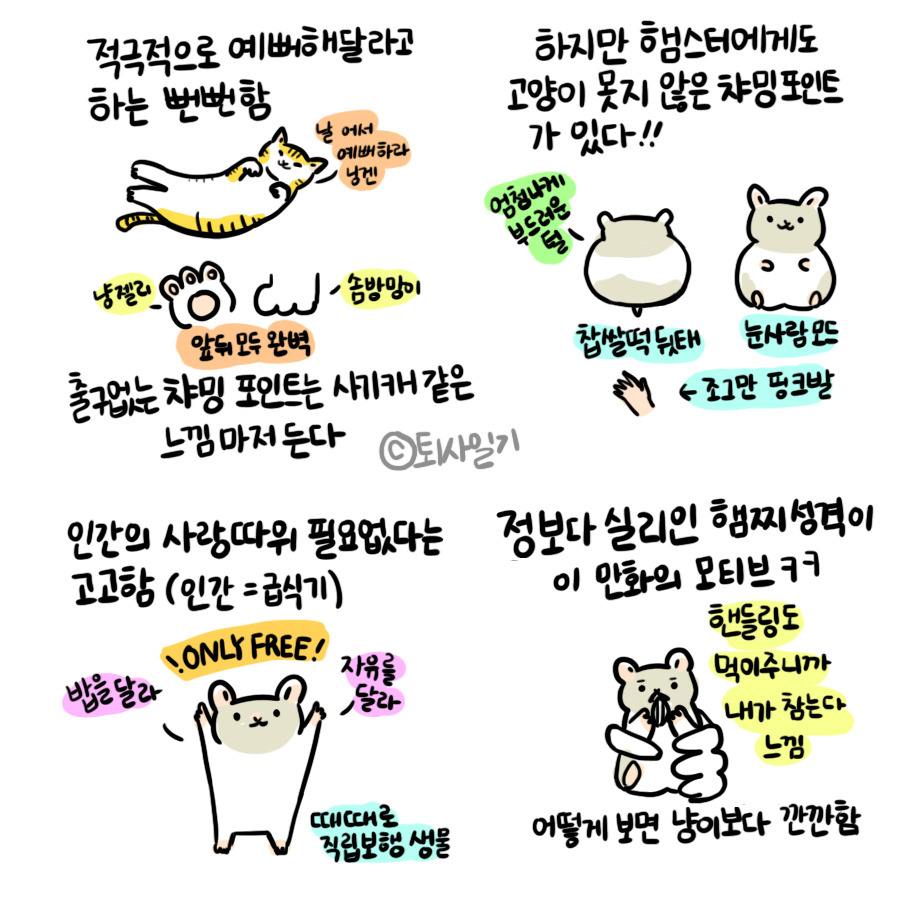 적극적으로 예뻐해달라고
하는 뻔뻔함
날 어서
예뻐하라
닝겐
냥젤리
솜방망이
앞뒤 모두 완벽
출구없는 챠밍 포인트는 사키캐 같은
느낌마저 든다
하지만 햄스터에게도
고양이 못지 않은 챠밍포인트
가 있다!!
엄청나게
부드러운
털
찹쌀떡 뒷태
눈사람모드
← 조그만 핑크발
©퇴사일기
인간의 사랑따위 필요없다는
고고함 (인간 = 급식기)
ONLY FREE!
밥을달라
자유를
달라
때때로
직립보행 생물
정보다 실리인 햄찌성격이
이 만화의 모티브ㅋㅋ
핸들링도
먹이주니까
내가 참는다
느낌
어떻게 보면 냥이보다 깐깐함